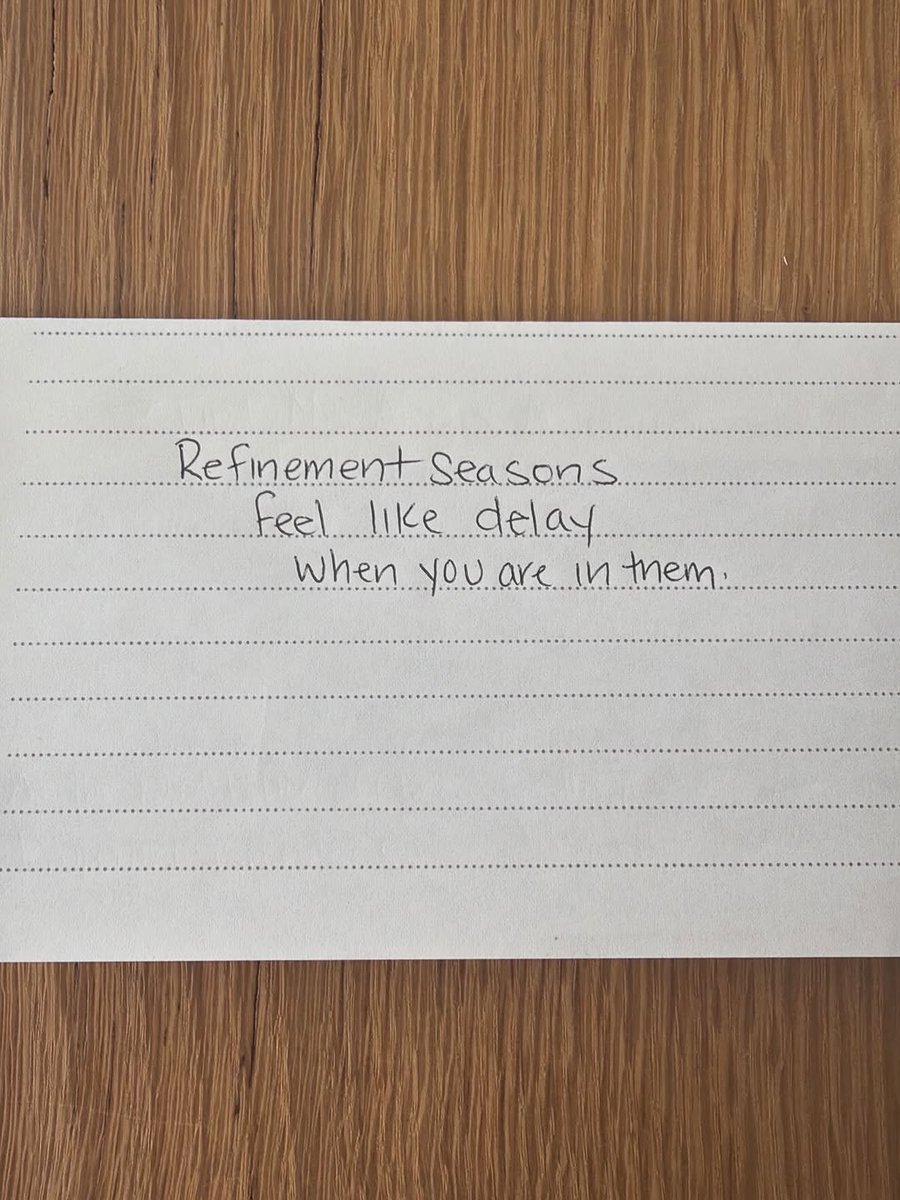 Refinement seasons
feel like delay
when you are in them.